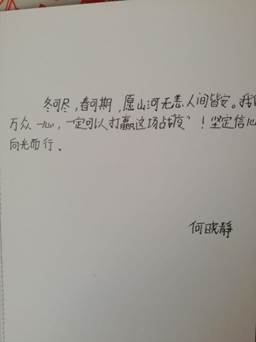 冬可尽，春可期，愿山河无恙人间皆安。我
万众一心，一定可以打赢这场战疫`！坚定信心
向光而行。
何晓静